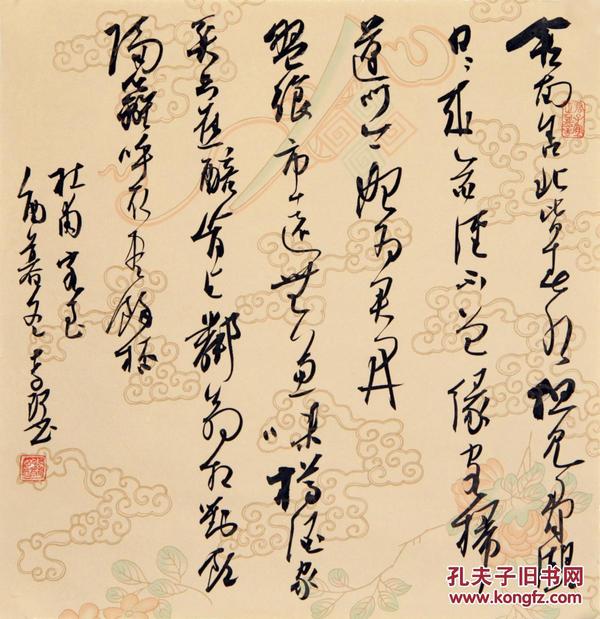 舍南舍北皆春水但見群鷗
日日來花徑不曾緣客掃
蓬門今始為君開
盤飧市遠無兼味樽酒家
貧只舊醅肯與鄰翁相對飲
隔籬呼取盡餘杯
杜甫客至
孔夫子旧书网
www.kongfz.com